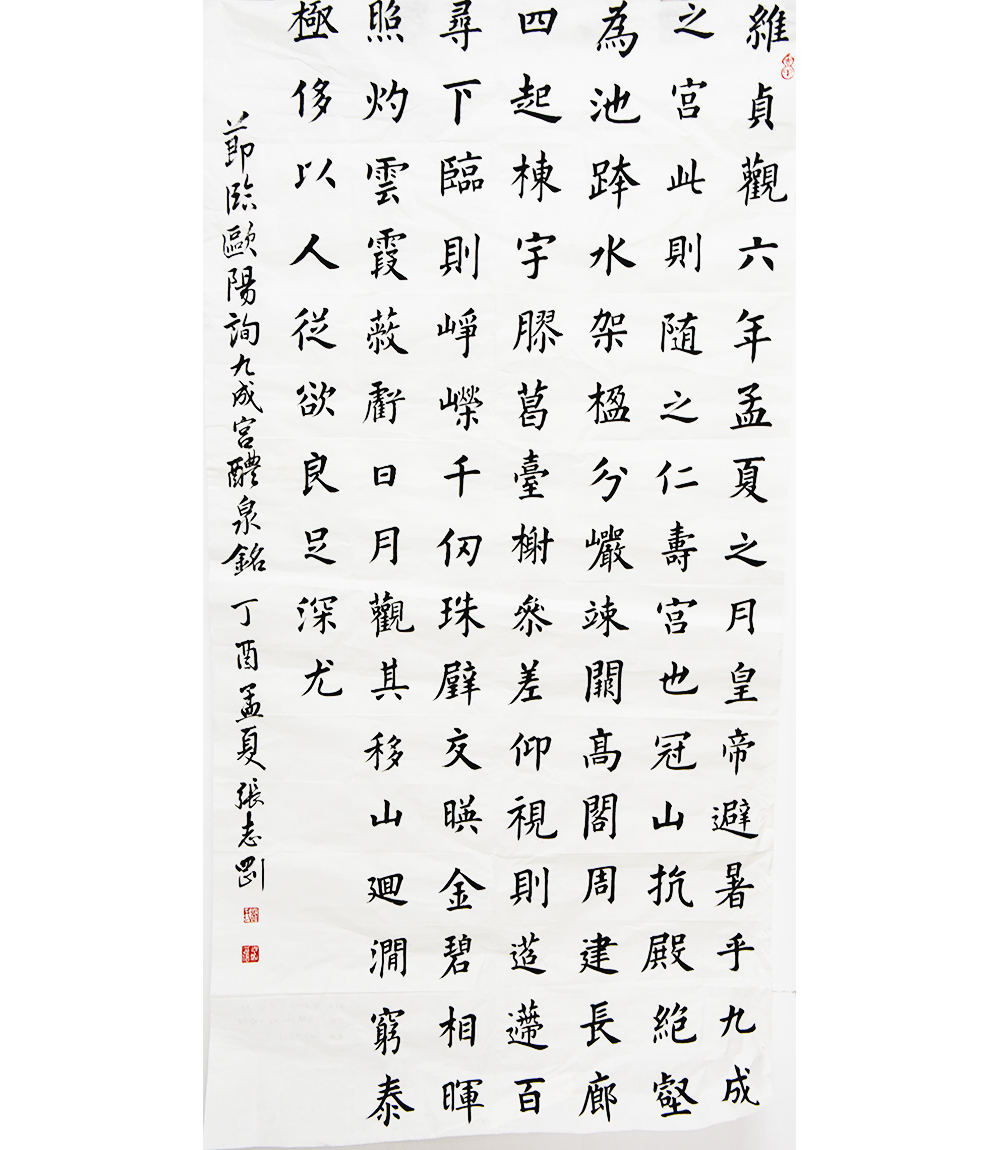 維貞觀六年孟夏之月皇帝避暑乎九成
之宮此則随之仁壽宮也冠山抗殿絕壑
為池跨水架楹分巖竦闕高閣周建長廊
四起棟宇膠葛臺榭叅差仰視則迢遰百
尋下臨則崢嶸千仞珠璧交暎金碧相暉
照灼雲霞蔽虧日月觀其移山迴澗窮泰
極侈以人従欲良足深尤
節临歐陽詢九成宮醴泉銘 丁酉孟夏 張志剛